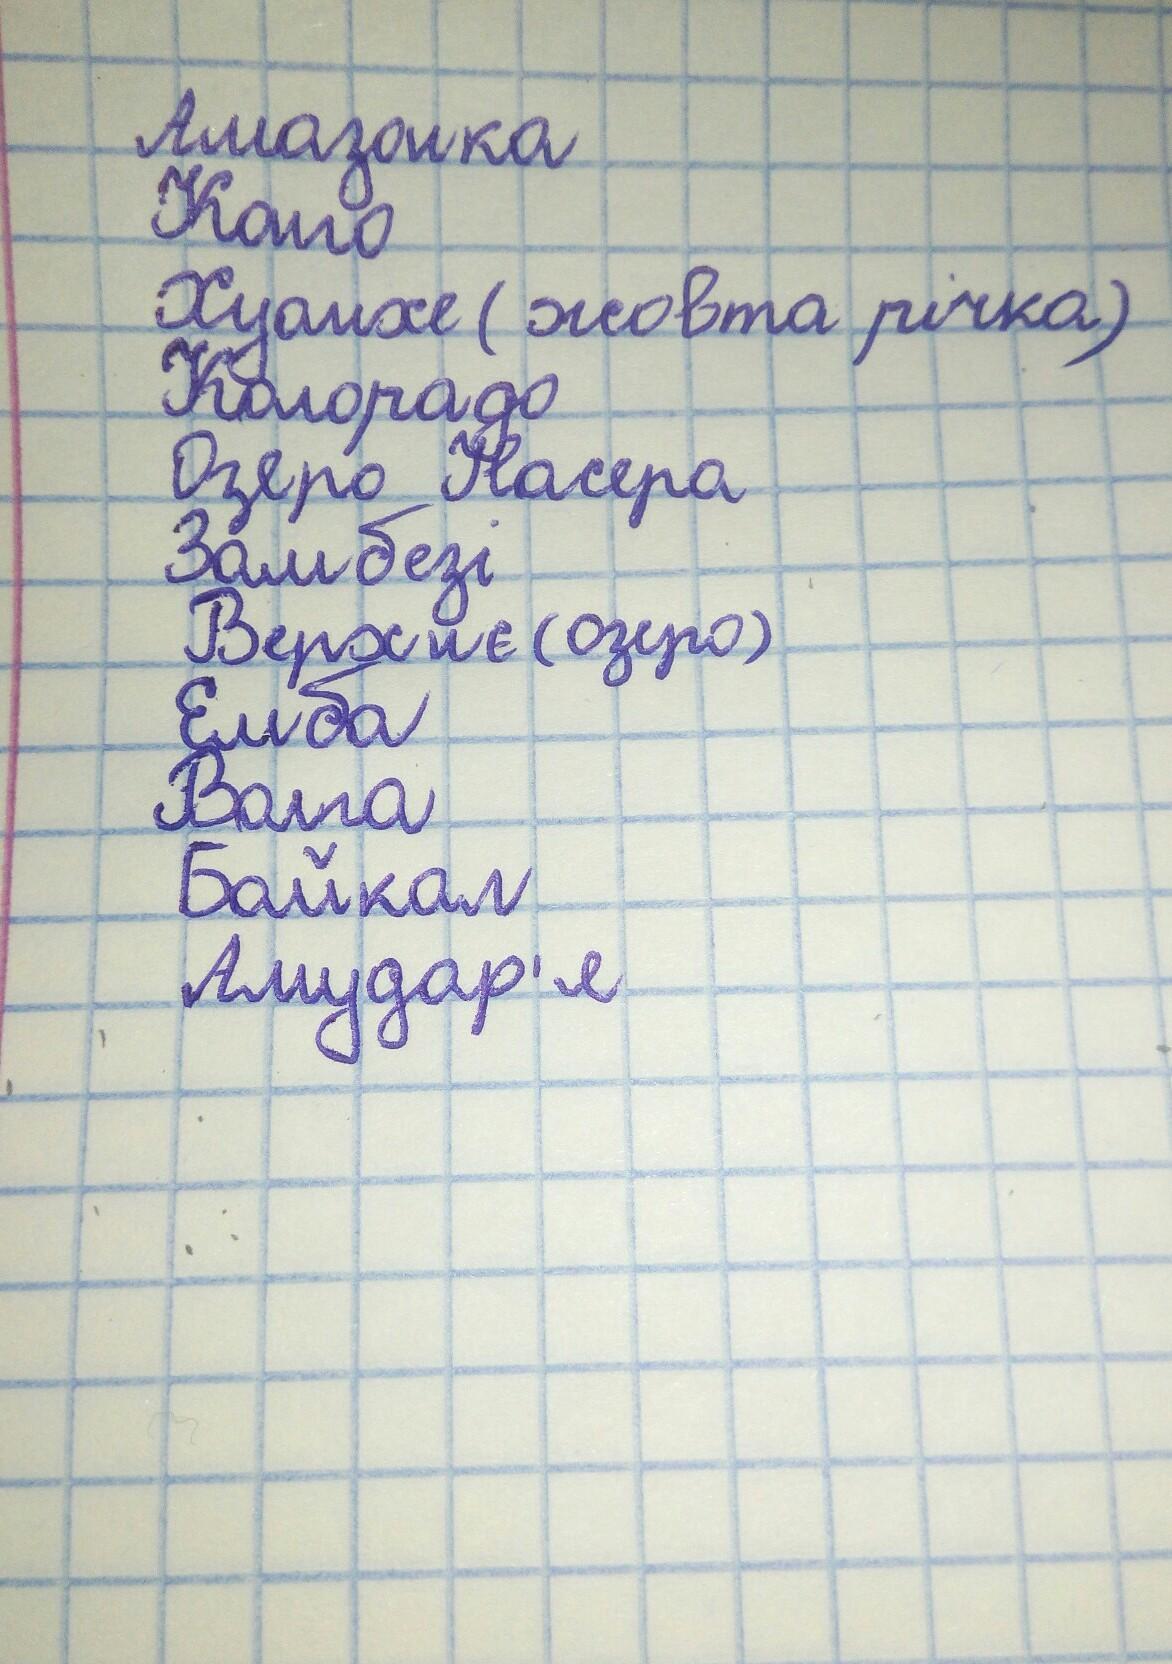 Амазонка
Конго
Хуанхе (жовта річка)
Колорадо
Озеро Насера
Замбезі
Верхнє (озеро)
Емба
Волга
Байкал
Амудар'я